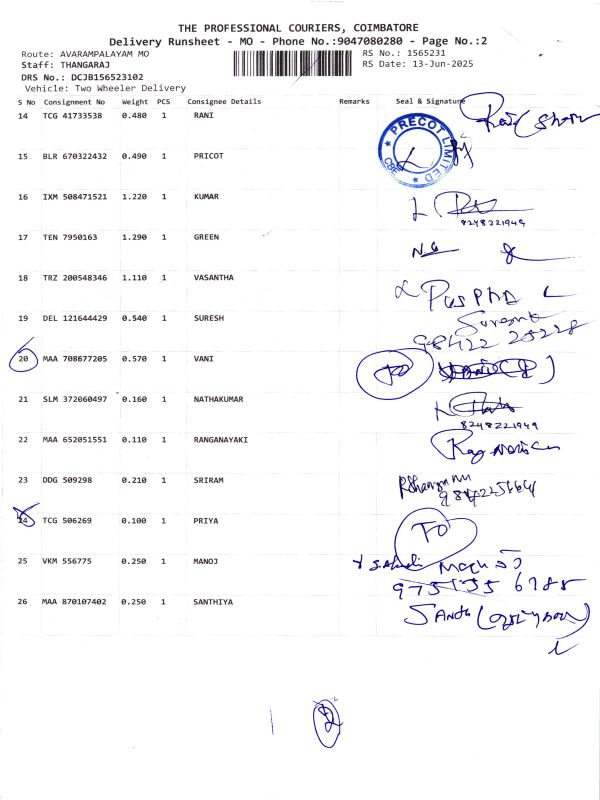 THE PROFESSIONAL COURIERS, COIMBATORE
Delivery Runsheet - MO - Phone No.:9047080280 - Page No.:2
Route: AVARAMPALAYAM MO RS No.: 1565231
Staff: THANGARAJ RS Date: 13-Jun-2025
DRS No.: DCJB156523102
Vehicle: Two Wheeler Delivery
S No Consignment No Weight PCS Consignee Details Remarks Seal & Signature
14 TCG 41733538 0.480 1 RANI
PRECOT LIMITED
CBE
15 BLR 670322432 0.490 1 PRICOT
16 IXM 508471521 1.220 1 KUMAR
8248221949
17 TEN 7950163 1.290 1 GREEN
18 TRZ 200548346 1.110 1 VASANTHA
19 DEL 121644429 0.540 1 SURESH
98422 25228
20 MAA 708677205 0.570 1 VANI TO
21 SLM 372060497 0.160 1 NATHAKUMAR
8248221949
22 MAA 652051551 0.110 1 RANGANAYAKI
23 DDG 509298 0.210 1 SRIRAM
24 TCG 506269 0.100 1 PRIYA TO
25 VKM 556775 0.250 1 MANOJ
26 MAA 870107402 0.250 1 SANTHIYA